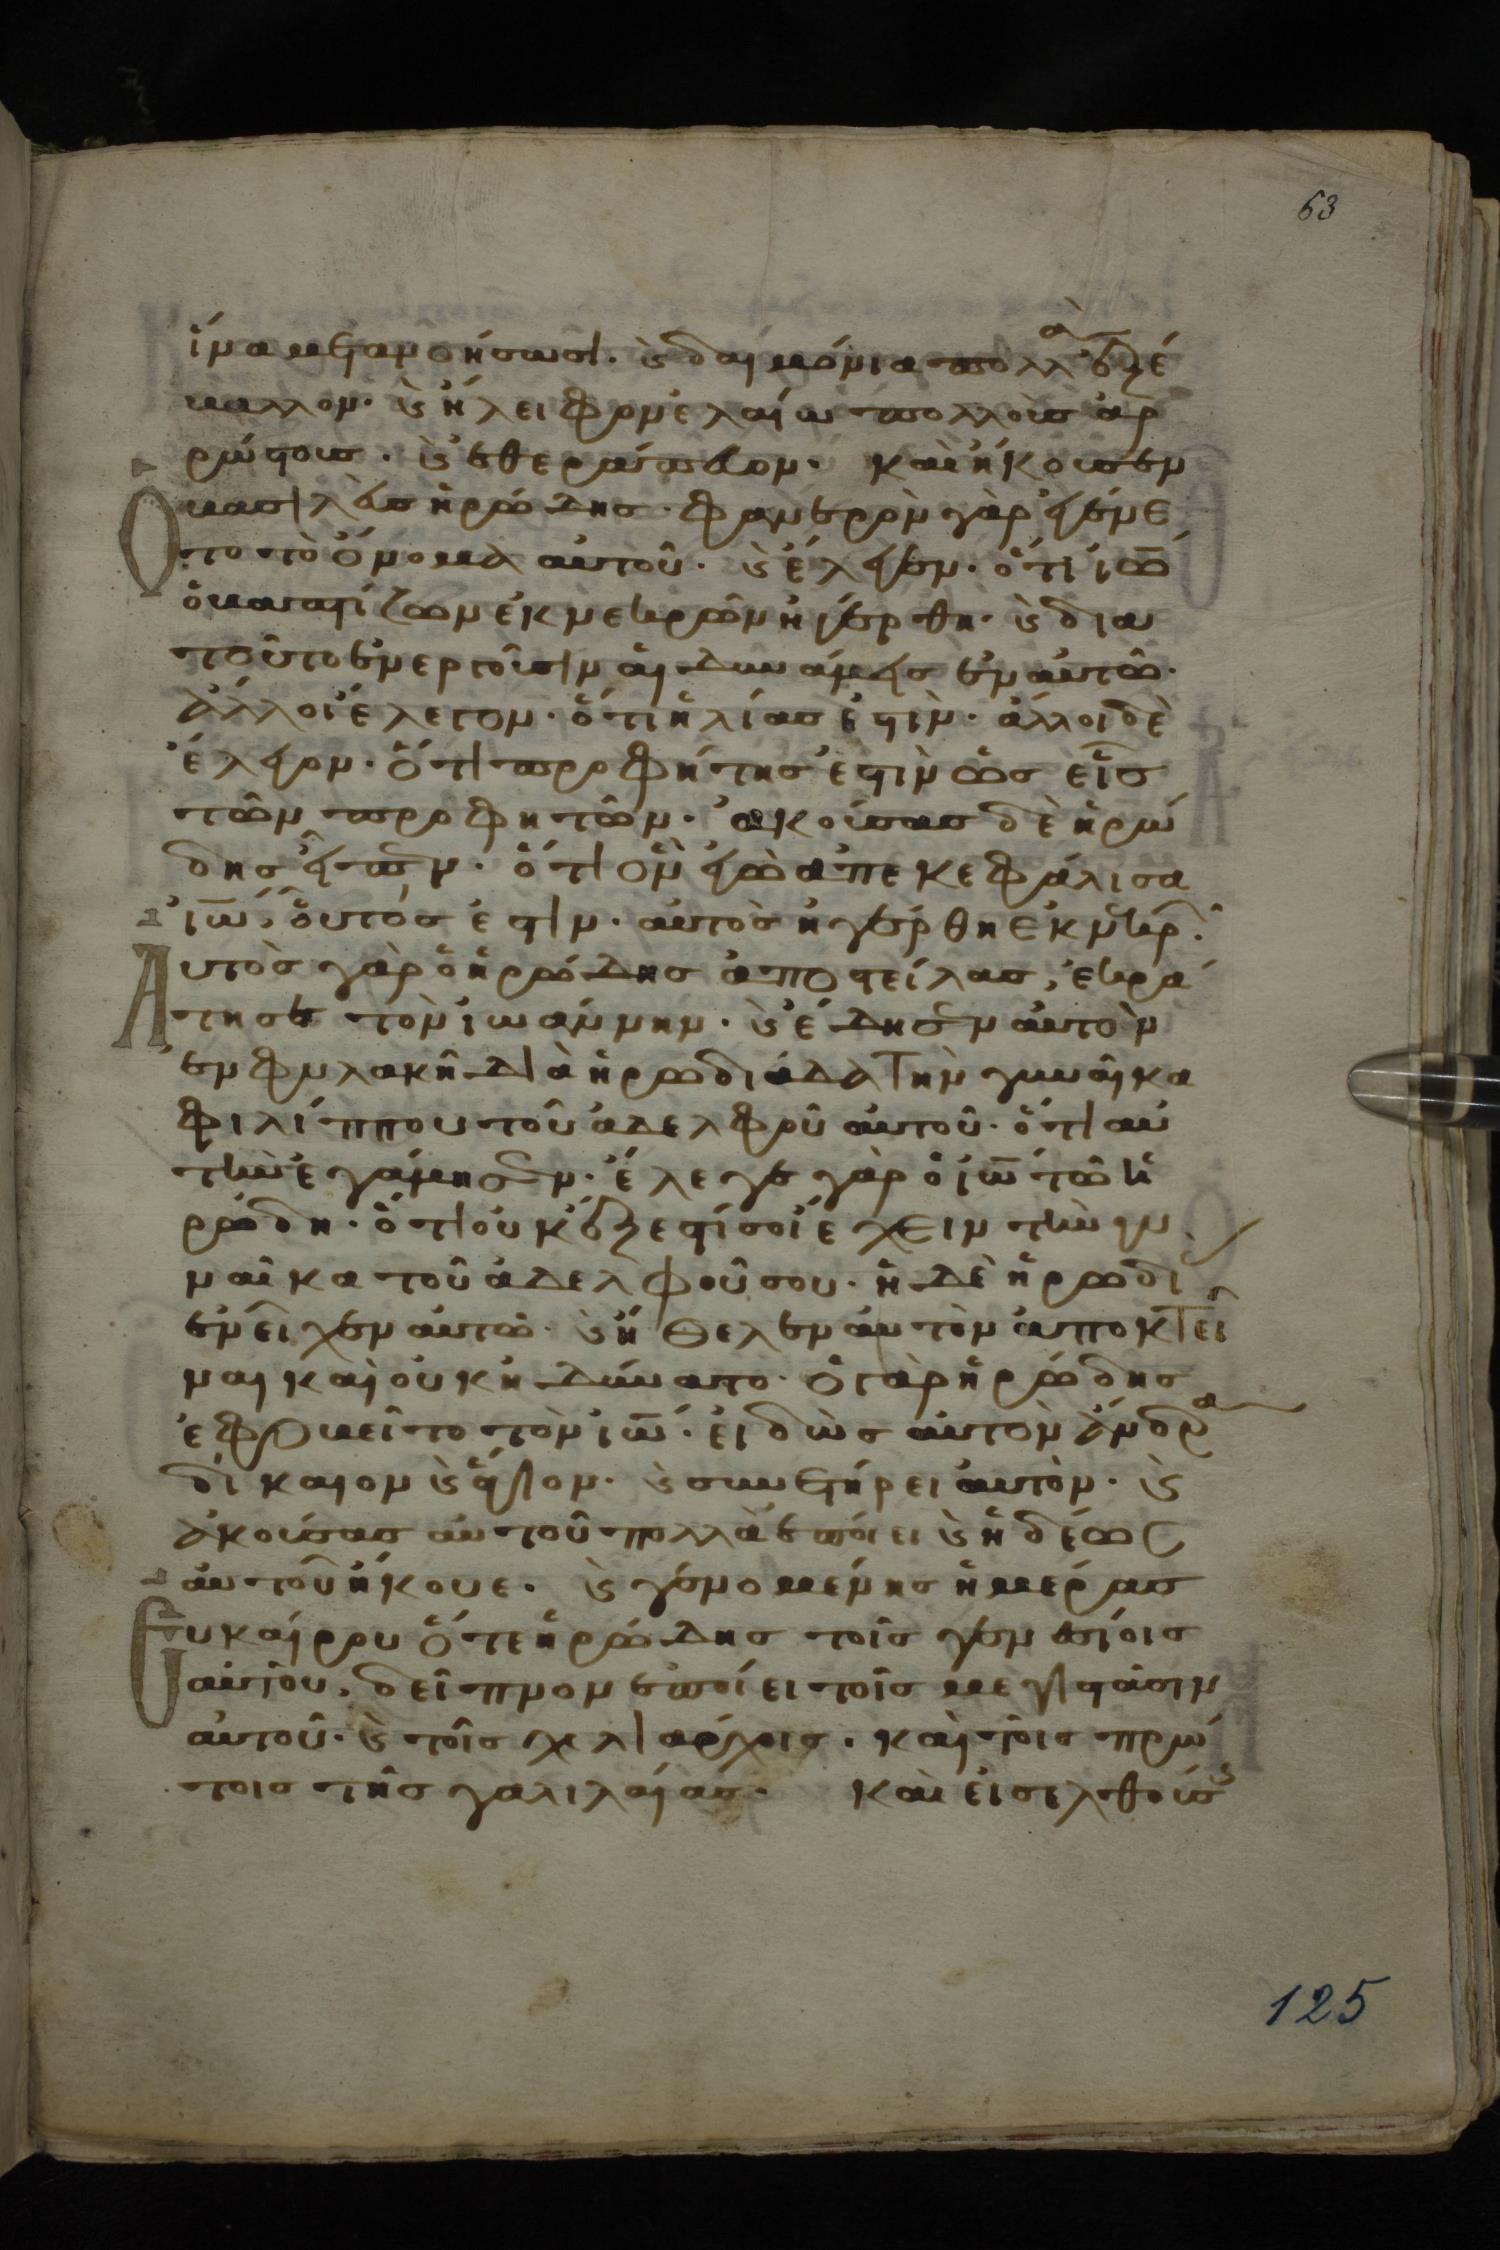 63
ἵνα μετανοήσωσι. ϗ δαιμόνια πολλὰ ἐξέ
βαλλον. ϗ ἤλειφον ἐλαίω πολλοὺς ἀρ
ρώστους. ϗ ἐθεράπευον. Καὶ ἤκουσεν
ὁ βασιλεὺς ἡρώδης. φανερὸν γὰρ ἐγένε
το τὸ ὄνομα αὐτοῦ. ϗ ἔλεγεν. ὅτι ἰω̅
ὁ βαπτίζων ἐκ νεκρῶν ἠγέρθη. ϗ δια
τοῦτο ἐνεργοῦσιν αἱ δυνάμεις ἐν αὐτῶ.
ἄλλοι ἔλεγον. ὅτι ἠλίας ἐστιν. ἄλλοι δὲ
ἔλεγον. ὅτι προφήτης ἐστὶν ὡς εἷς
τῶν προφητῶν. ἀκούσας δὲ ἡρώ
δης εἶπεν. ὅτι ὃν ἐγὼ ἀπεκεφάλισα
ἰω̅, οὗτός ἐστιν. αὐτὸς ἠγέρθη ἐκ νεκρ.
Αὐτὸς γὰρ ὁ ἡρώδης ἀποστείλας, ἐκρά
τησε τὸν ἰωάννην. ϗ ἔδησεν αὐτὸν
ἐν φυλακῆ διὰ ἡρωδιάδα τὴν γυναῖκα
φιλίππου τοῦ ἀδελφοῦ αὐτοῦ. ὅτι αὐ
τὴν ἐγάμησεν. ἔλεγε γὰρ ὁ ἰω̅ τῶ ἡ
ρώδη. ὅτι οὐκ ἔξεστί σοι ἔχειν τὴν γυ
ναῖκα τοῦ ἀδελφοῦ σου. ἡ δὲ ἡρωδι
ἐνεῖχεν αὐτῶ. ϗ ἤθελεν αὐτὸν ἀποκτεῖ
ναι καὶ οὐκ ἠδύνατο. ὁ γὰρ ἡρώδης
ἐφοβεῖτο τὸν ἰω̅. εἰδὼς αὐτὸν ἄνδρα
δίκαιον ϗ ἅγιον. ϗ συνετήρει αὐτὸν. ϗ
ἀκούσας αὐτοῦ πολλὰ ἐποίει ϗ ἡδέως
αὐτοῦ ἤκουε. ϗ γενομένης ἡμέρας
εὐκαίρου ὅτε ἡρώδης τοῖς γενεσίοις
αὐτοῦ, δεῖπνον ἐποίει τοῖς μεγιστάσιν
αὐτοῦ. ϗ τοῖς χιλιάρχοις. καὶ τοῖς πρώ
τοις τῆς γαλιλαίας. Καὶ εἰσελθούσ
125